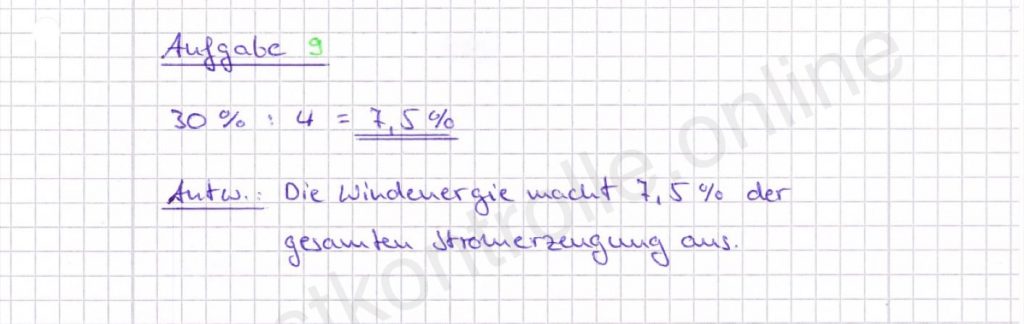 Aufgabe 9
30 % : 4 = 7,5 %
Antw.: Die Windenergie macht 7,5 % der
gesamten Stromerzeugung aus.
stkontrolle.online